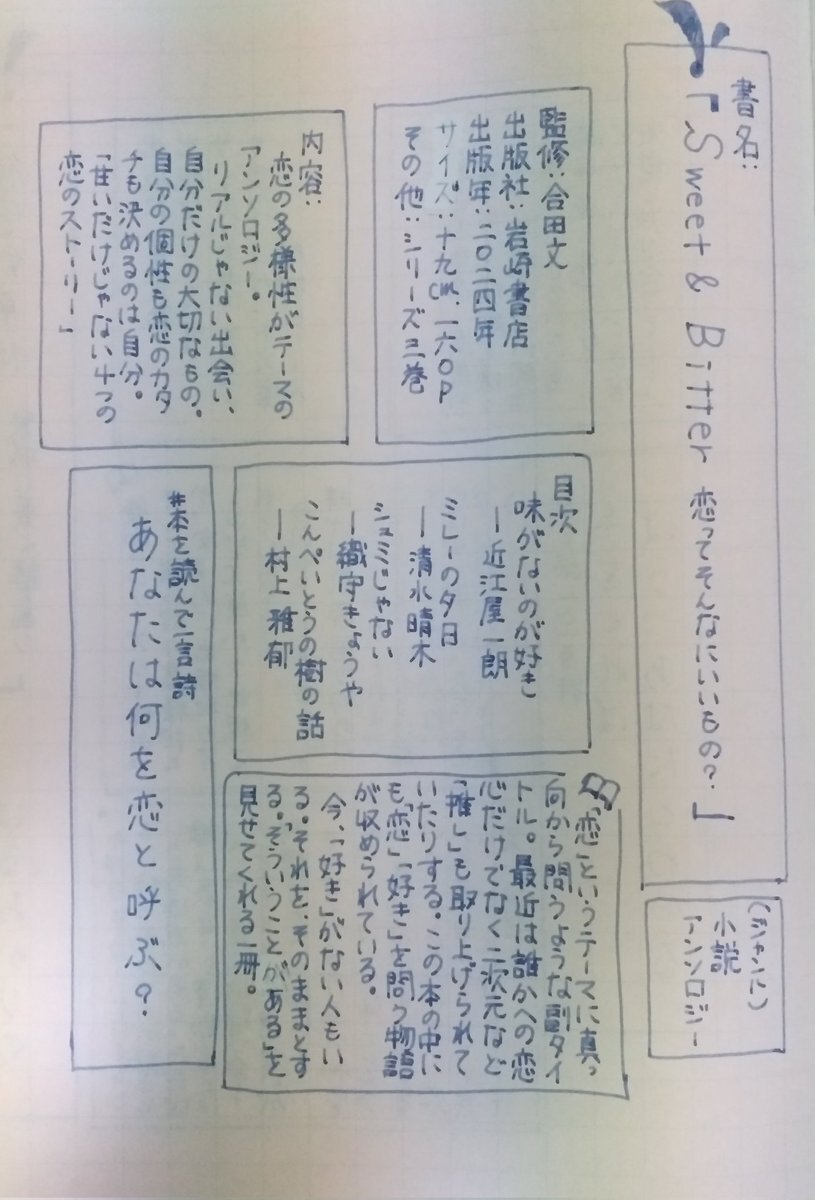 書名:
『Sweet & Bitter 恋ってそんなにいいもの?』
(ジャンル)
小説
アンソロジー
監修:合田文
出版社:岩崎書店
出版年:二〇二四年
サイズ:十九㎝、一六〇P
その他:シリーズ三巻
目次
味がないのが好き
ー近江屋一朗
ミレーの夕日
ー清水晴木
シュミじゃない
ー織守きょうや
こんぺいとうの樹の話
ー村上雅郁
「恋」というテーマに真っ
向から問うような副タイ
トル。最近は誰かへの恋
心だけでなく二次元など
「推し」も取り上げられて
いたりする。この本の中に
も「恋」「好き」を問う物語
が収められている。
今、「好き」がない人もい
る。それを、そのままとす
る。「そういうことがある」を
見せてくれる一冊。
内容:
恋の多様性がテーマの
アンソロジー。
「リアルじゃない出会い、
自分だけの大切なもの。
自分の個性も恋のカタ
チも決めるのは自分。
「甘いだけじゃない4つの
恋のストーリー」
#本を読んで一言詩
あなたは何を恋と呼ぶ?